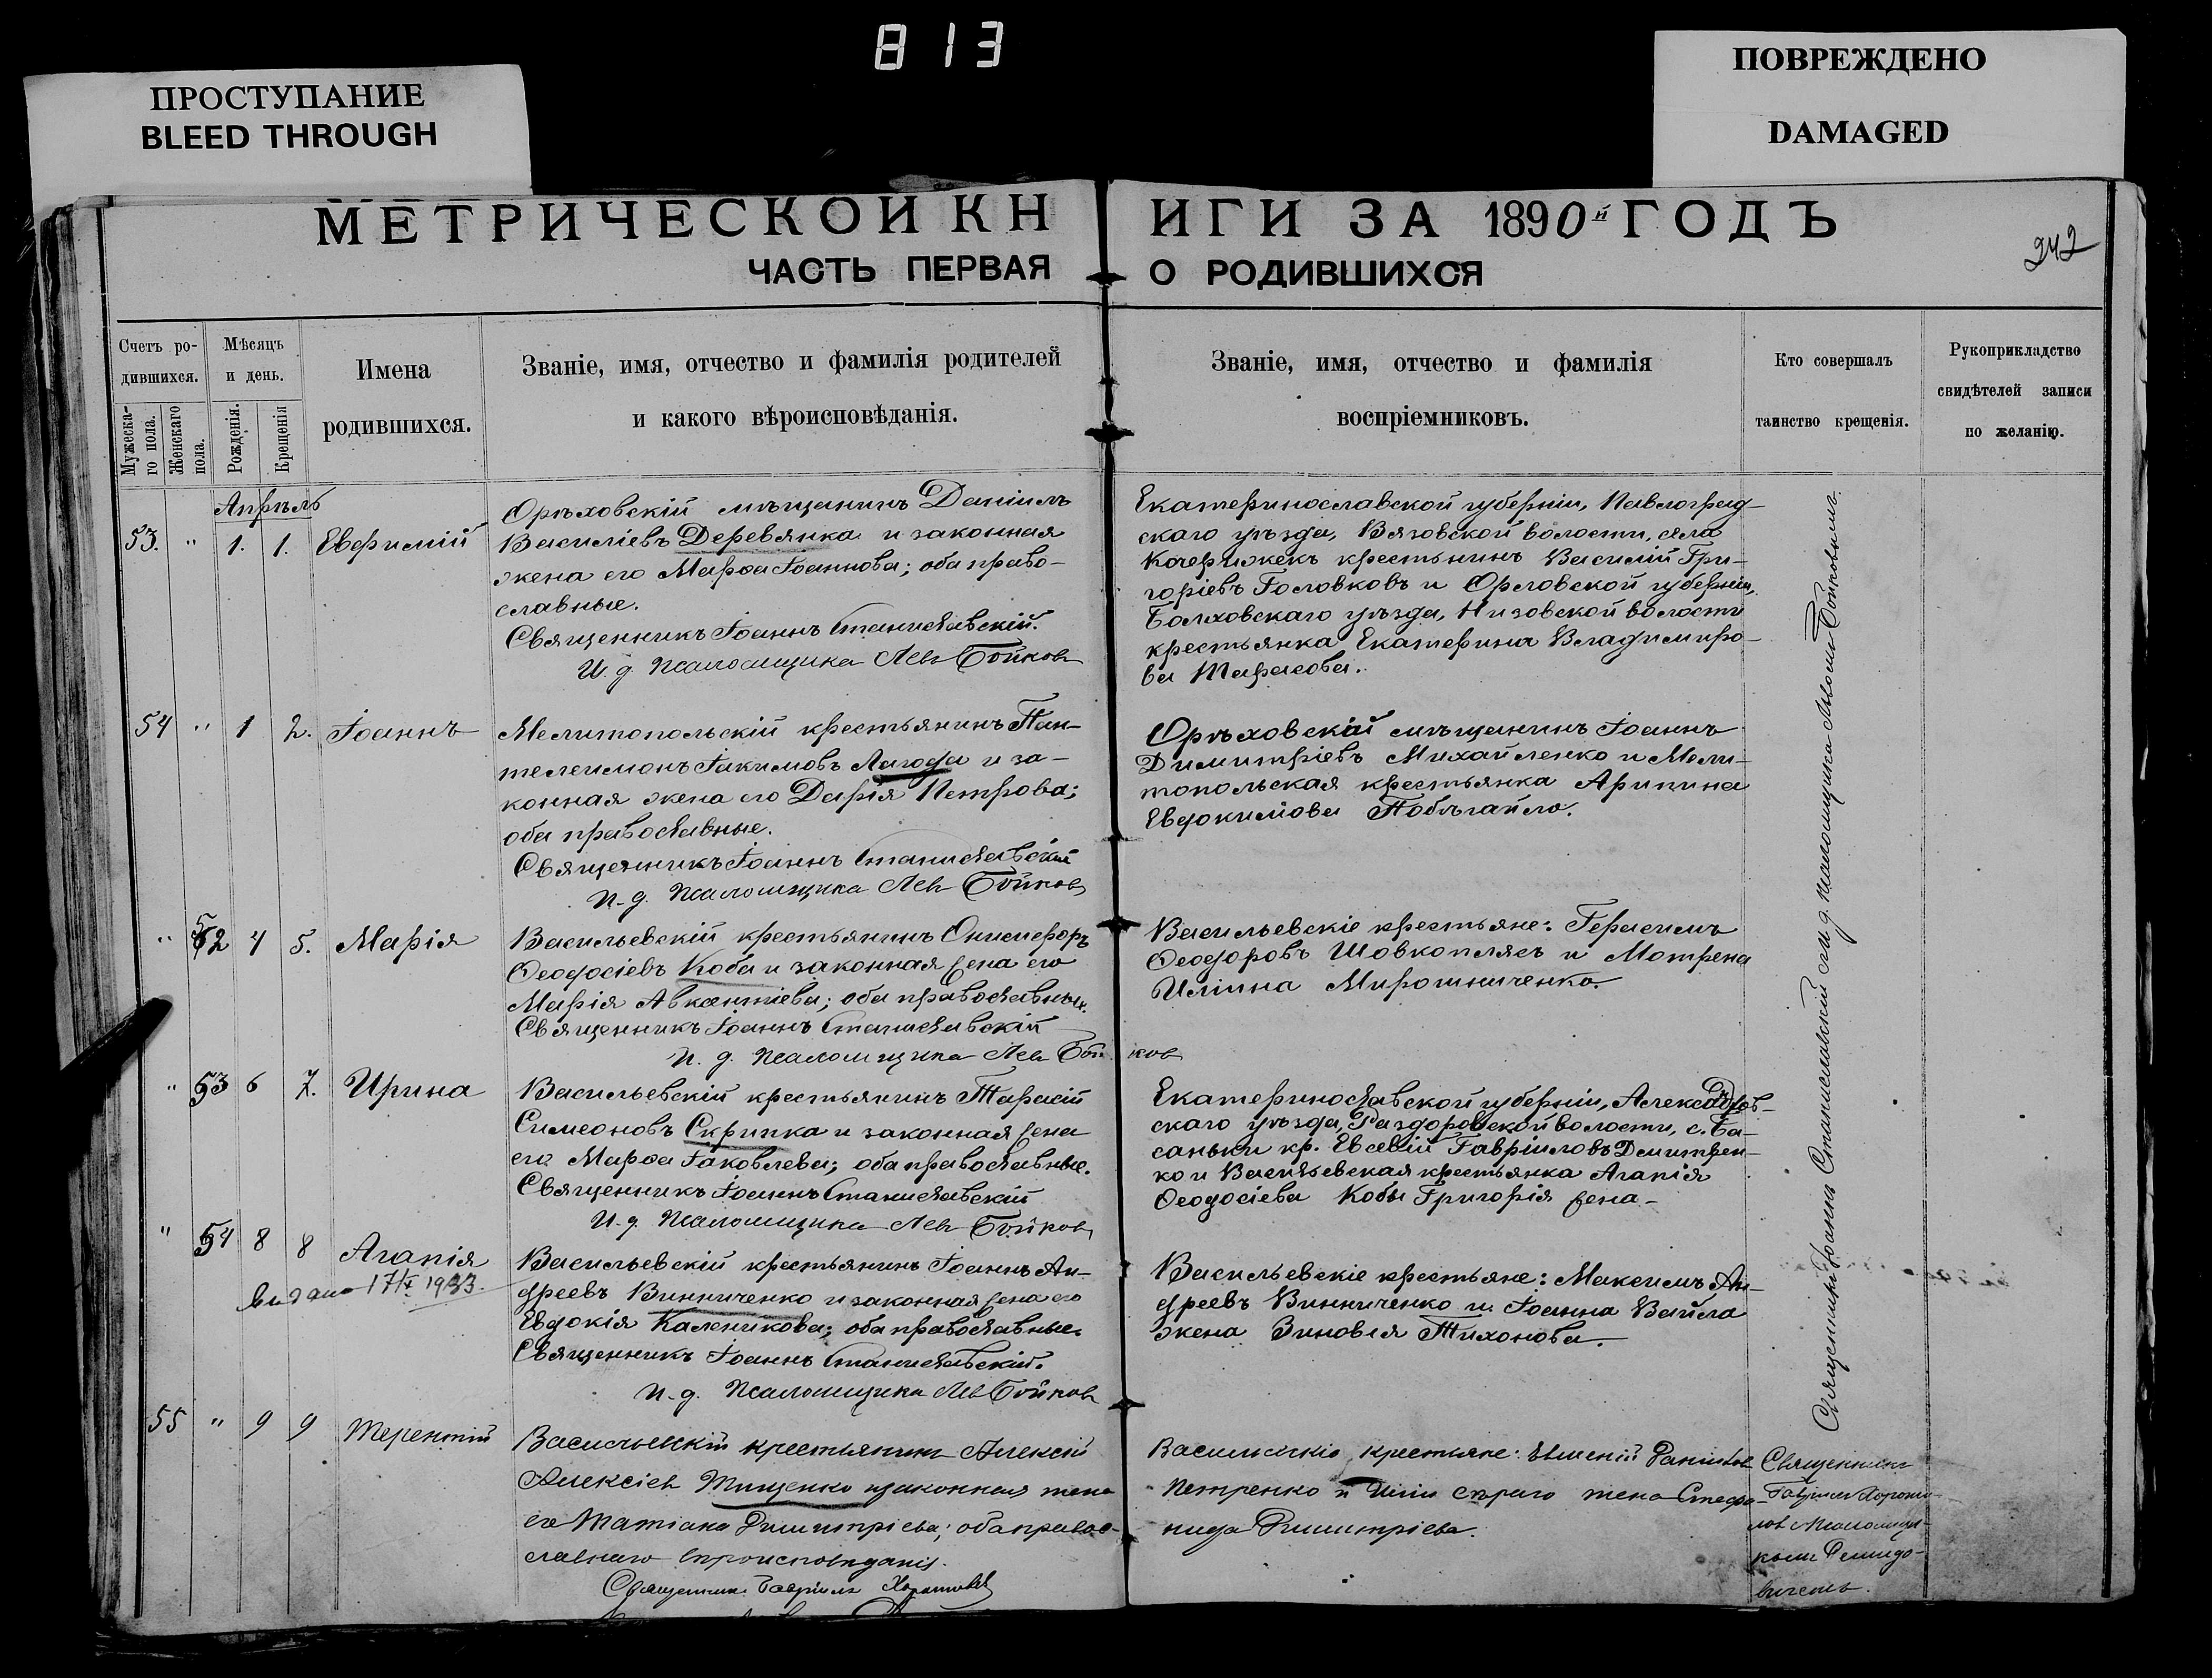 813
ПРОСТУПАНИЕ
BLEED THROUGH
ПОВРЕЖДЕНО
DAMAGED
МЕТРИЧЕСКОЙ КНИГИ ЗА 1890й ГОДЪ
ЧАСТЬ ПЕРВАЯ О РОДИВШИХСЯ
242
Счетъ ро-
дившихся.
Мужеска-
го пола.
Женскаго
пола.
Мѣсяцъ
и день.
Рожденія.
Крещенія
Имена
родившихся.
Званіе, имя, отчество и фамилія родителей
и какого вѣроисповѣданія.
Званіе, имя, отчество и фамилія
воспріемниковъ.
Кто совершалъ
таинство крещенія.
Рукоприкладство
свидѣтелей записи
по желанію.
Апрѣль
53. " 1. 1. Евфимій
Орѣховскій мѣщанинъ Даніилъ
Василіевъ Деревянка и законная
жена его Марѳа Іоаннова; оба право-
славные.
Священникъ Іоаннъ Станиславскій.
И. д. Псаломщика Лев Бойков
Екатеринославской губерніи, Павлоград-
скаго уѣзда, Вязовской волости, села
Кочережекъ крестьнинъ Василій Гри-
горіевъ Головковъ и Орловской губерніи,
Болховскаго уѣзда, Низовской волости
крестьянка Екатерина Владимиро-
ва Тарасова.
54 " 1 2. Іоаннъ
Мелитопольскій крестьянинъ Пан-
телеимонъ Іакимовъ Лагода и за-
конная жена его Дарія Петрова;
оба православные.
Священникъ Іоаннъ Станиславскій
И. д. Псаломщика Лев Бойков
Орѣховскій мѣщанинъ Іоаннъ
Димитріевъ Михайленко и Мели-
топольская крестьянка Арипина
Евдокимова Побѣгайло.
" 52 4 5. Марія
Васильевскій крестьянинъ Онисифоръ
Ѳеодосіевъ Коба и законная жена его
Марія Авксентіева; оба православные.
Священникъ Іоаннъ Станиславскій
И. д. Псаломщика Лев Бойков
Васильевскіе крестьяне: Герасимъ
Ѳеодоровъ Шовкоплясъ и Мотрена
Иліина Мирошниченко.
" 53 6 7. Ирина
Васильевскій крестьянинъ Тарасій
Симеоновъ Скрипка и законная жена
его Марѳа Іаковлева; оба православные.
Священникъ Іоаннъ Станиславскій
И. д. Псаломщика Лев Бойков
Екатеринославской губерніи, Александров-
скаго уѣзда, Раздоровской волости, с. Ба-
саньки кр. Евсевій Гавріиловъ Дмитрен-
ко и Васильевская крестьянка Агапія
Ѳеодосіева Кобы Григорія жена-
" 54 8 8 Агапія
видано 17/X 1933.
Васильевскій крестьянинъ Іоаннъ Ан-
дреевъ Винниченко и законная жена его
Евдокія Каленикова; оба православные.
Священникъ Іоаннъ Станиславскій.
И. д. Псаломщика Лев Бойков
Васильевскіе крестьяне: Максимъ Ан-
дреевъ Винниченко и Іоанна Вайла
жена Зиновія Тихонова.
Священникъ Іоаннъ Станиславскій съ и д псаломщика Львомъ Бойковымъ.
55 " 9 9 Терентій
Васильевскій крестьянинъ Алексій
Алексіев Тищенко и законная жена
его Татіана Димитріева; оба право-
славнаго вѣроисповѣданія.
Священник Гавріилъ
Васильевскіе крестьяне:
Петренко и жена Стефа-
нида Димитріева.
Священникъ
Гавріилъ